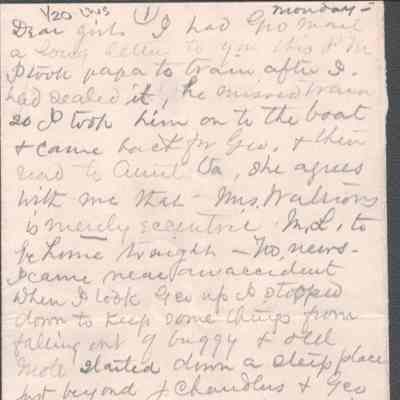 Monday -
1/20 1913 (1)
Dear girls I had Geo mail
a long letter to you this P.M.
I took papa to train after I
had sealed it, he missed train
so I took him on to the boat
& came back for Geo, & then
to Aunt Va, she agrees
with me that - Mrs. Watsons
is merely eccentric. M.L. to
be home tonight - No, news -
I came near an accident
When I took Geo up I stopped
down to keep some things from
falling out of buggy & old
Mole started down a steep place
just beyond J Chandlers & Geo